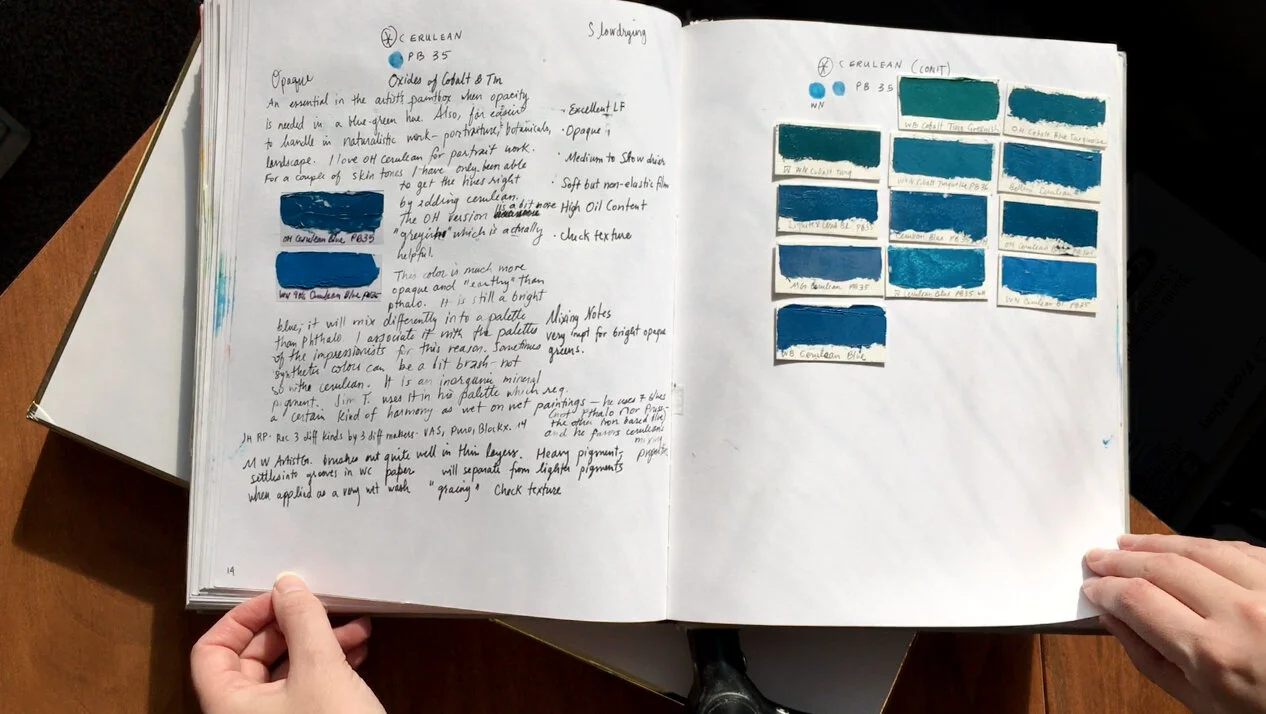 CERULEAN
PB 35
Slowdrying
Opaque
Oxides of Cobalt & Tin
An essential in the artists paintbox when opacity
is needed in a blue-green hue. Also, far easier
to handle in naturalistic work - portraiture, botanicals,
landscape. I love OH Cerulean for portrait work.
For a couple of skin tones I have only been able
to get the hues right
by adding cerulean.
The OH version is a bit more
"greyish" which is actually
helpful.
OH Cerulean Blue PB35
WN Cerulean Blue PB35
This color is much more
opaque and "earthy" than
phthalo. It is still a bright
blue; it will mix differently into a palette
than Phthalo I associate it with the palettes
of the impressionists for this reason. Sometimes
synthetic colors can be a bit brash - not
so with cerulean. It is an inorganic mineral
pigment. Jim T. uses it in his palette which req.
a certain kind of harmony as wet on wet paintings - he uses 7 blues
(not Pthalo nor Pruss-
the other iron based blue)
and he favors ceruleans
mixing
properties
JH RP - Rec 3 diff kinds by 3 diff makers - VAS, Puro, Blockx. 14
MW ArtistGr. brushes out quite well in thin layers. Heavy pigment,
settles into grooves in WC paper will separate from lighter pigments
when applied as a very wet wash Check texture
• Excellent LF
• Opaque
• Medium to Slow drier
• Soft but non-elastic film
High Oil Content
• Check texture
Mixing Notes
very impt for bright opaque
greens.
14
CERULEAN (CONT)
PB 35
WN
WB Cobalt Turq Greenish
OH Cobalt Blue Turquoise
WN Cobalt Turq
WN Cobalt Turquoise PB36
Cerulean
PB35
Blue PB35
OH Cerulean
MG Cerulean PB35
Cerulean Blue PB35
WN Cerulean Bl. PB35
WB Cerulean Blue